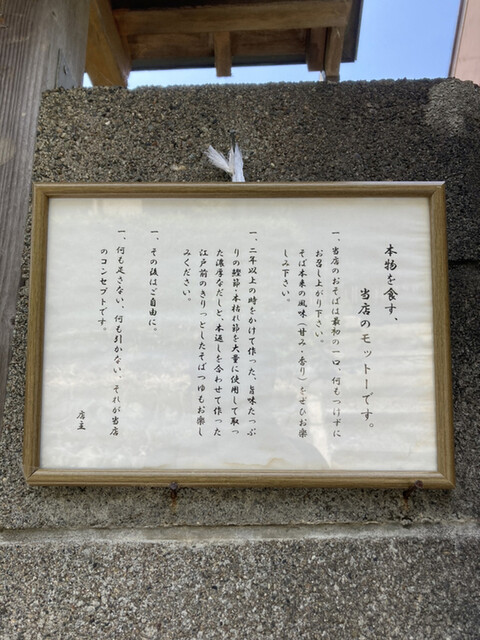 本物を食す、
当店のモットーです。
一、当店のおそばは最初の一口、何もつけずに
お召し上がり下さい。
そば本来の風味(甘み・香り)もぜひお楽
しみ下さい。
一、二年以上の時をかけて作った、旨味たっぷ
りの鰹節・本枯れ節を大量に使用して取っ
た濃厚なだしと、本返しを合わせて作った
江戸前のきりっとしたそばつゆもお楽し
みください。
一、その後はご自由に。
一、何も足さない、何も引かない、それが当店
のコンセプトです。
店主